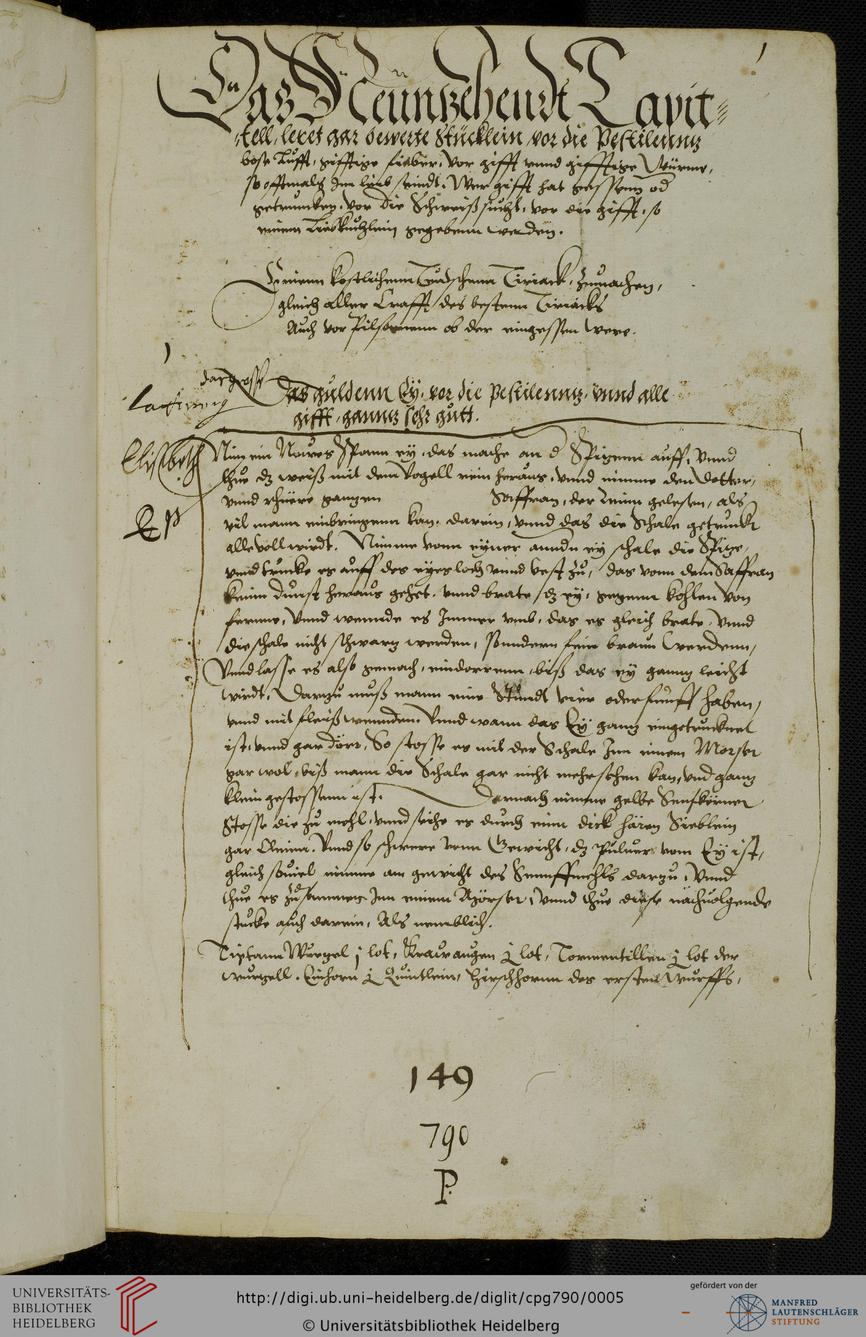 1
Das Neünzehendt Capit-
tell, leret gar bewerte Stücklein, vor die Pestilenntz
böse Lufft, gifftige fieber, vor gifft vnnd gifftige Würme,
so offtmals Im leib seindt. Wer gifft hat gessenn od
getrunncken, vor die Schweißsucht, vor die gifft, so
einem Liebkuchlein gegebenn werden.
Einenn kostlichenn Tiriack, Zumachen,
gleich aller Crafft des bestenn Tiriacks
Auch vor Pilsamenn ob der eingessen were.
das gross
Latwerg
Das guldenn Ey, vor die Pestilenntz, vnnd alle
gifft,ganntz sehr gutt.
Elisabeth
Nim ein Neuwes Ey, das mache an d Spitzenn auff, vnnd
thue dz weiß mit dem Dotter, vnnd nimme den dotter,
vnnd rhuere gantzen Saffran, der Reim gelesen, als
vil mann einbringenn kan, darein, vnnd das die Schale getruckt
alle voll wirdt. Nimme vonn eyner anndn ey schale die Spitze,
vnnd trucke es auff des eyes loch vnnd vest zu, das vonn dem Saffran
keinn dunst heraus gehet, vnnd brate dz ey, gegenn kohlen von
fernne, vnnd wennde es Immer vmb, das es gleich brate, vnnd
die schale nicht schwartz werden, Sonndern fein braun werdenn,
Vnnd lasse es also gemach, eindorrenn, biß das ey gantz leicht
wirdt, Dartzu muß mann eine Stundt vier oder funff haben,
vnnd mit fleiß wennden. Vnnd wann das Ey gantz eingetrucknet
ist, vnnd gar dörr, So stosse es mit der Schale Inn einem Morser
gar wol, biß mann die Schale gar nicht mehr sehen kan, vnd gantz
klein gestossenn ist. Darnach nimme gelbe Senfkörner
stosse die zu mehl, vnnd seihe es durch einn dick hären Sieblein
gar Reine. Vnnd so schwere vonn Gewicht, dz Puluer vom Ey ist,
gleich souiel nimme am gewicht des Sennffmehls dartzu, Vnnd
thue es zusammen Inn einem Mörser, Vnnd thue diese nachuolgende
stucke auch darein, Als nemblich.
Diptam Wurtzel j lot, Kraraugen j lot, Tormentillen j lot der
wurtzell. Einhorn j Quintlein, Hirschhornn des ersten Wurffs,
149
790
P.
UNIVERSITÄTS-
BIBLIOTHEK
HEIDELBERG
http://digi.ub.uni-heidelberg.de/diglit/cpg790/0005
© Universitätsbibliothek Heidelberg
gefördert von der
MANFRED
LAUTENSCHLÄGER
STIFTUNG